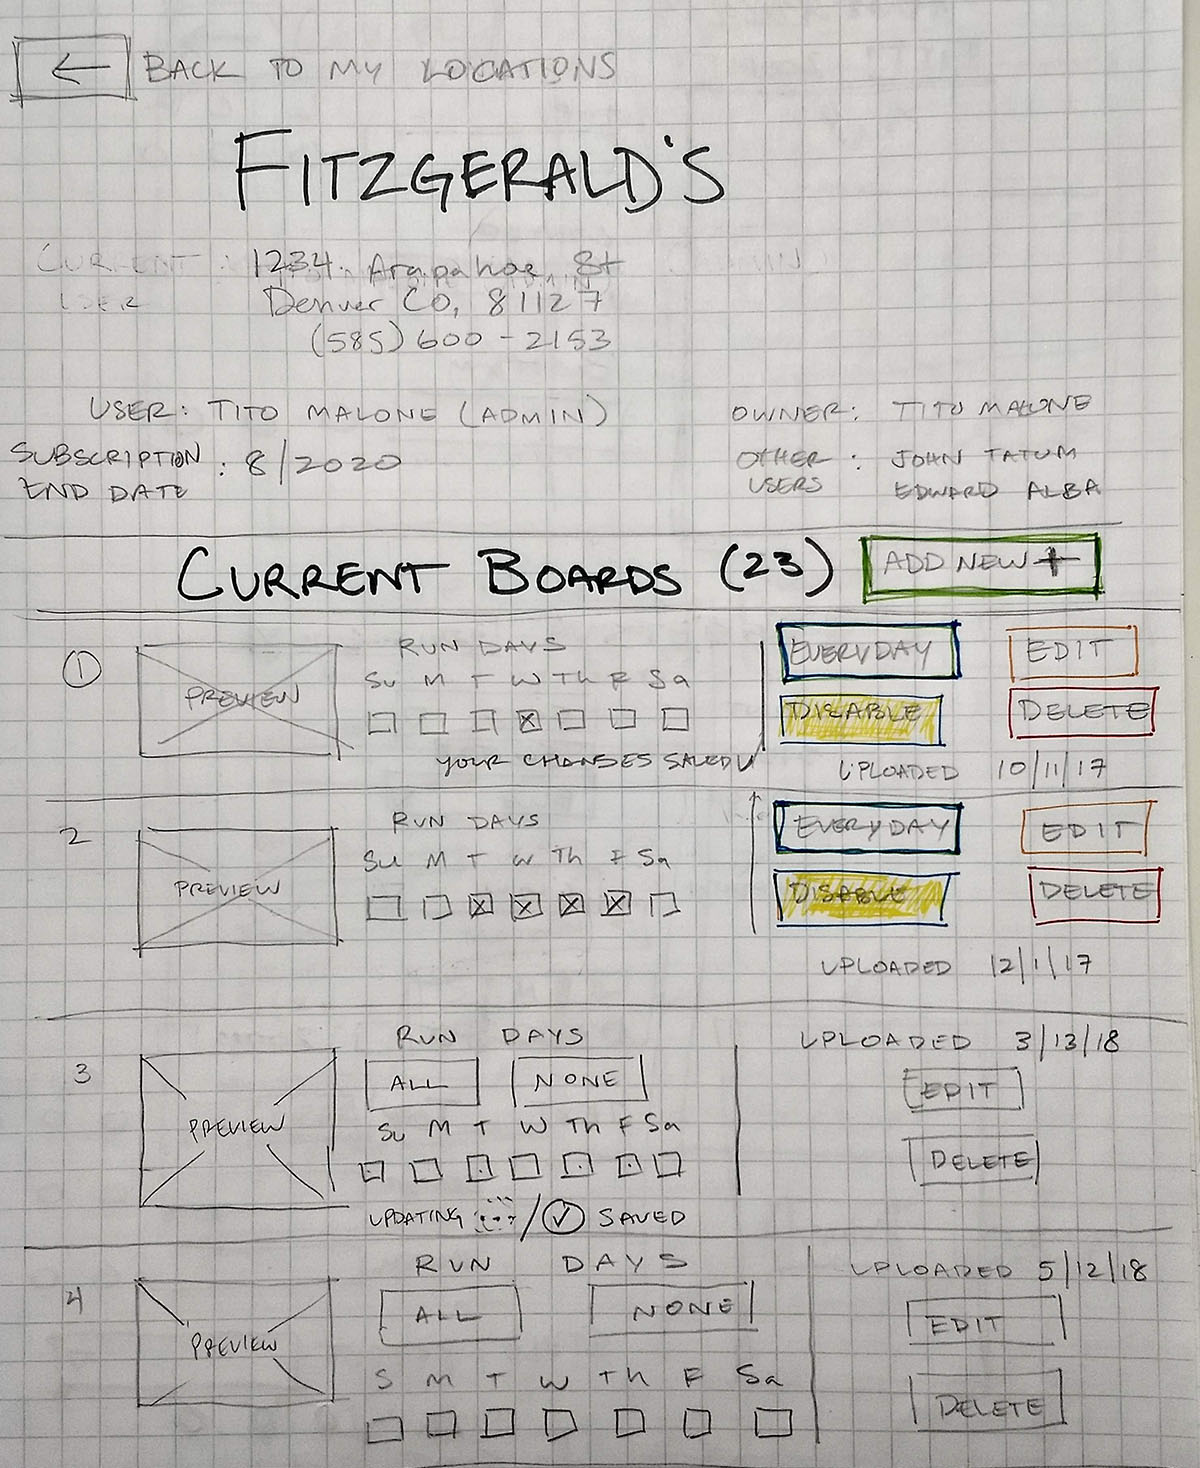 ← BACK TO MY LOCATIONS
FITZGERALD'S
CURRENT : 1234 Arapahoe, St
USER Denver CO, 81127
(585) 600-2153
USER: TITO MALONE (ADMIN)
OWNER: TITO MALONE
SUBSCRIPTION : 8/2020
END DATE
OTHER : JOHN TATUM
USERS EDWARD ALBA
CURRENT BOARDS (23) ADD NEW +
1
PREVIEW
RUN DAYS
Su M T W Th F Sa
YOUR CHANGES SAVED
EVERYDAY EDIT
DISABLE DELETE
UPLOADED 10/11/17
2
PREVIEW
RUN DAYS
Su M T W Th F Sa
EVERYDAY EDIT
DISABLE DELETE
UPLOADED 12/1/17
3
PREVIEW
RUN DAYS
ALL NONE
Su M T W Th F Sa
UPDATING / ✓ SAVED
UPLOADED 3/13/18
EDIT
DELETE
4
PREVIEW
RUN DAYS
ALL NONE
S M T W Th F Sa
UPLOADED 5/12/18
EDIT
DELETE